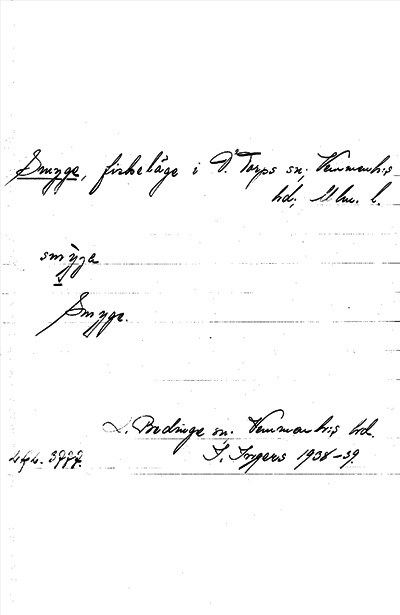 Smyge, fiskeläge i Ö. Torps sn; Vemmenhögs
hd; Mlm. l.
smyge
Smyge.
L. Beddinge sn. Vemmenhögs hd.
I. Ingers 1938-39.